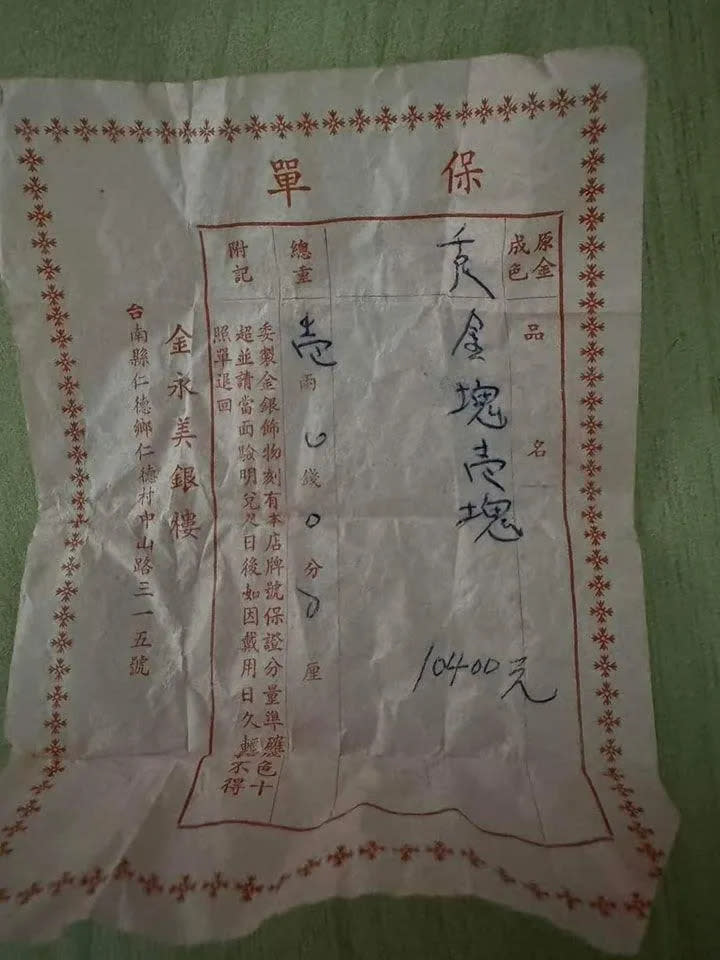 保單
原金成色
品名
金塊壱塊
10400元
總重
壱兩0錢0分0厘
附記
委製金銀飾物刻有本店牌號保證分量準確色十
超並請當面驗明兌及日後如因戴用日久輕不得
照單退回
金永美銀樓
台南縣仁德鄉仁德村中山路三一五號